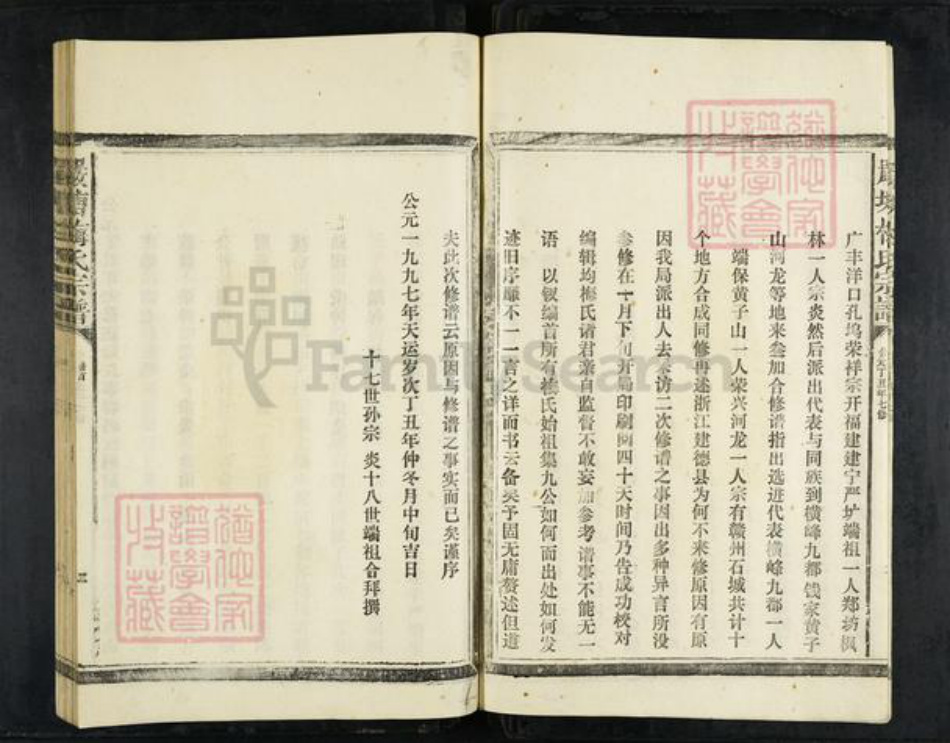 广丰洋口孔坞荣祥宗开福建建宁严圹端祖一人郑坊枫
林一人宗炎然后派出代表与同族到横峰九都钱家黄子
山河龙等地来叁加合修谱指出选进代表横峰九都一人
端保黄子山一人荣兴河龙一人宗有赣州石城共计十
个地方合成同修再述浙江建德县为何不来修原因有原
因我局派出人去 访二次修谱之事因出多种异言所没
参修在十月下旬开局印刷 四十天时间乃告成功校对
编辑均梅氏诸君亲自监督不敢妄加参考谱事不能无一
语 以叙编首所有梅氏始祖集九公如何而出处如何发
迹旧序靡不一一言之详而书云备矣予固无庸赘述但道
夫此次修谱云原因与修谱之事实而已矣谨序
公元一九九七年天运岁次丁丑年仲冬月中旬吉日
十七世孙宗 炎十八世端祖合拜撰
梅氏宗譜
卷首
三
梅氏宗譜
FamilySearch
猶他家譜學會收藏
猶他家譜學會收藏